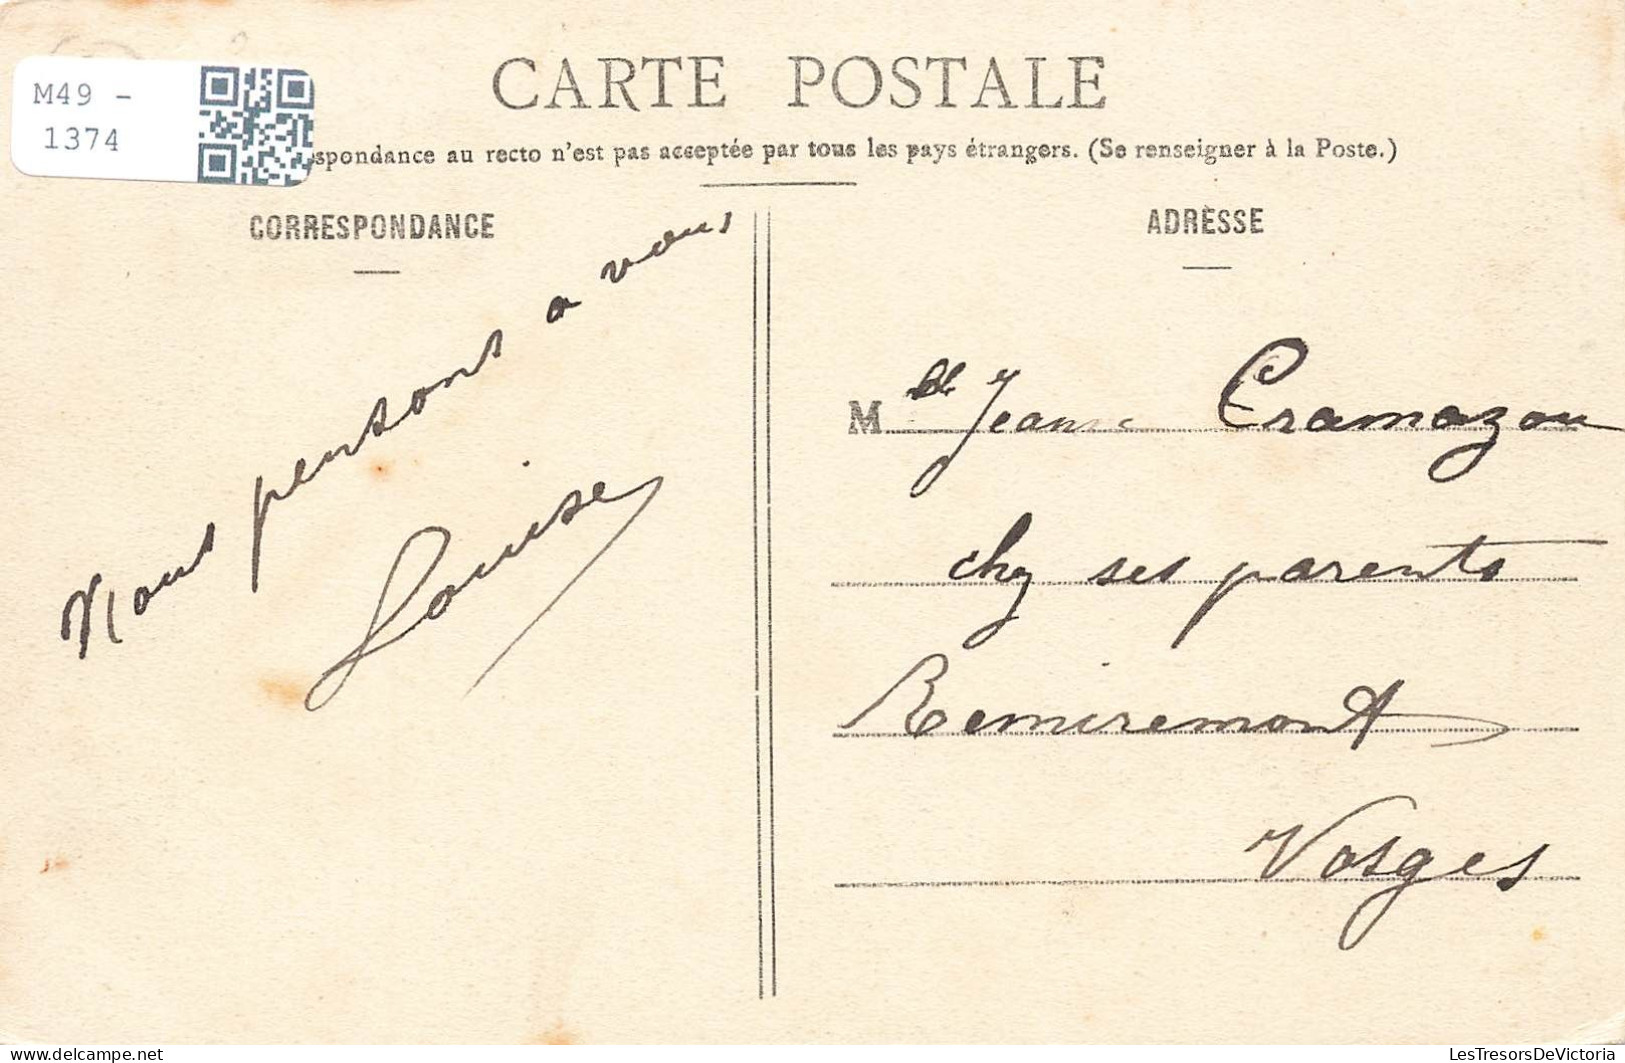 M49 -
1374
CARTE POSTALE
spondance au recto n'est pas acceptée par tous les pays étrangers. (Se renseigner à la Poste.)
CORRESPONDANCE
Nous pensons a vous
Louise
ADRESSE
Mlle Jeanne Cramazou
chez ses parents
Remiremont
Vosges
www.delcampe.net
LesTresorsDeVictoria